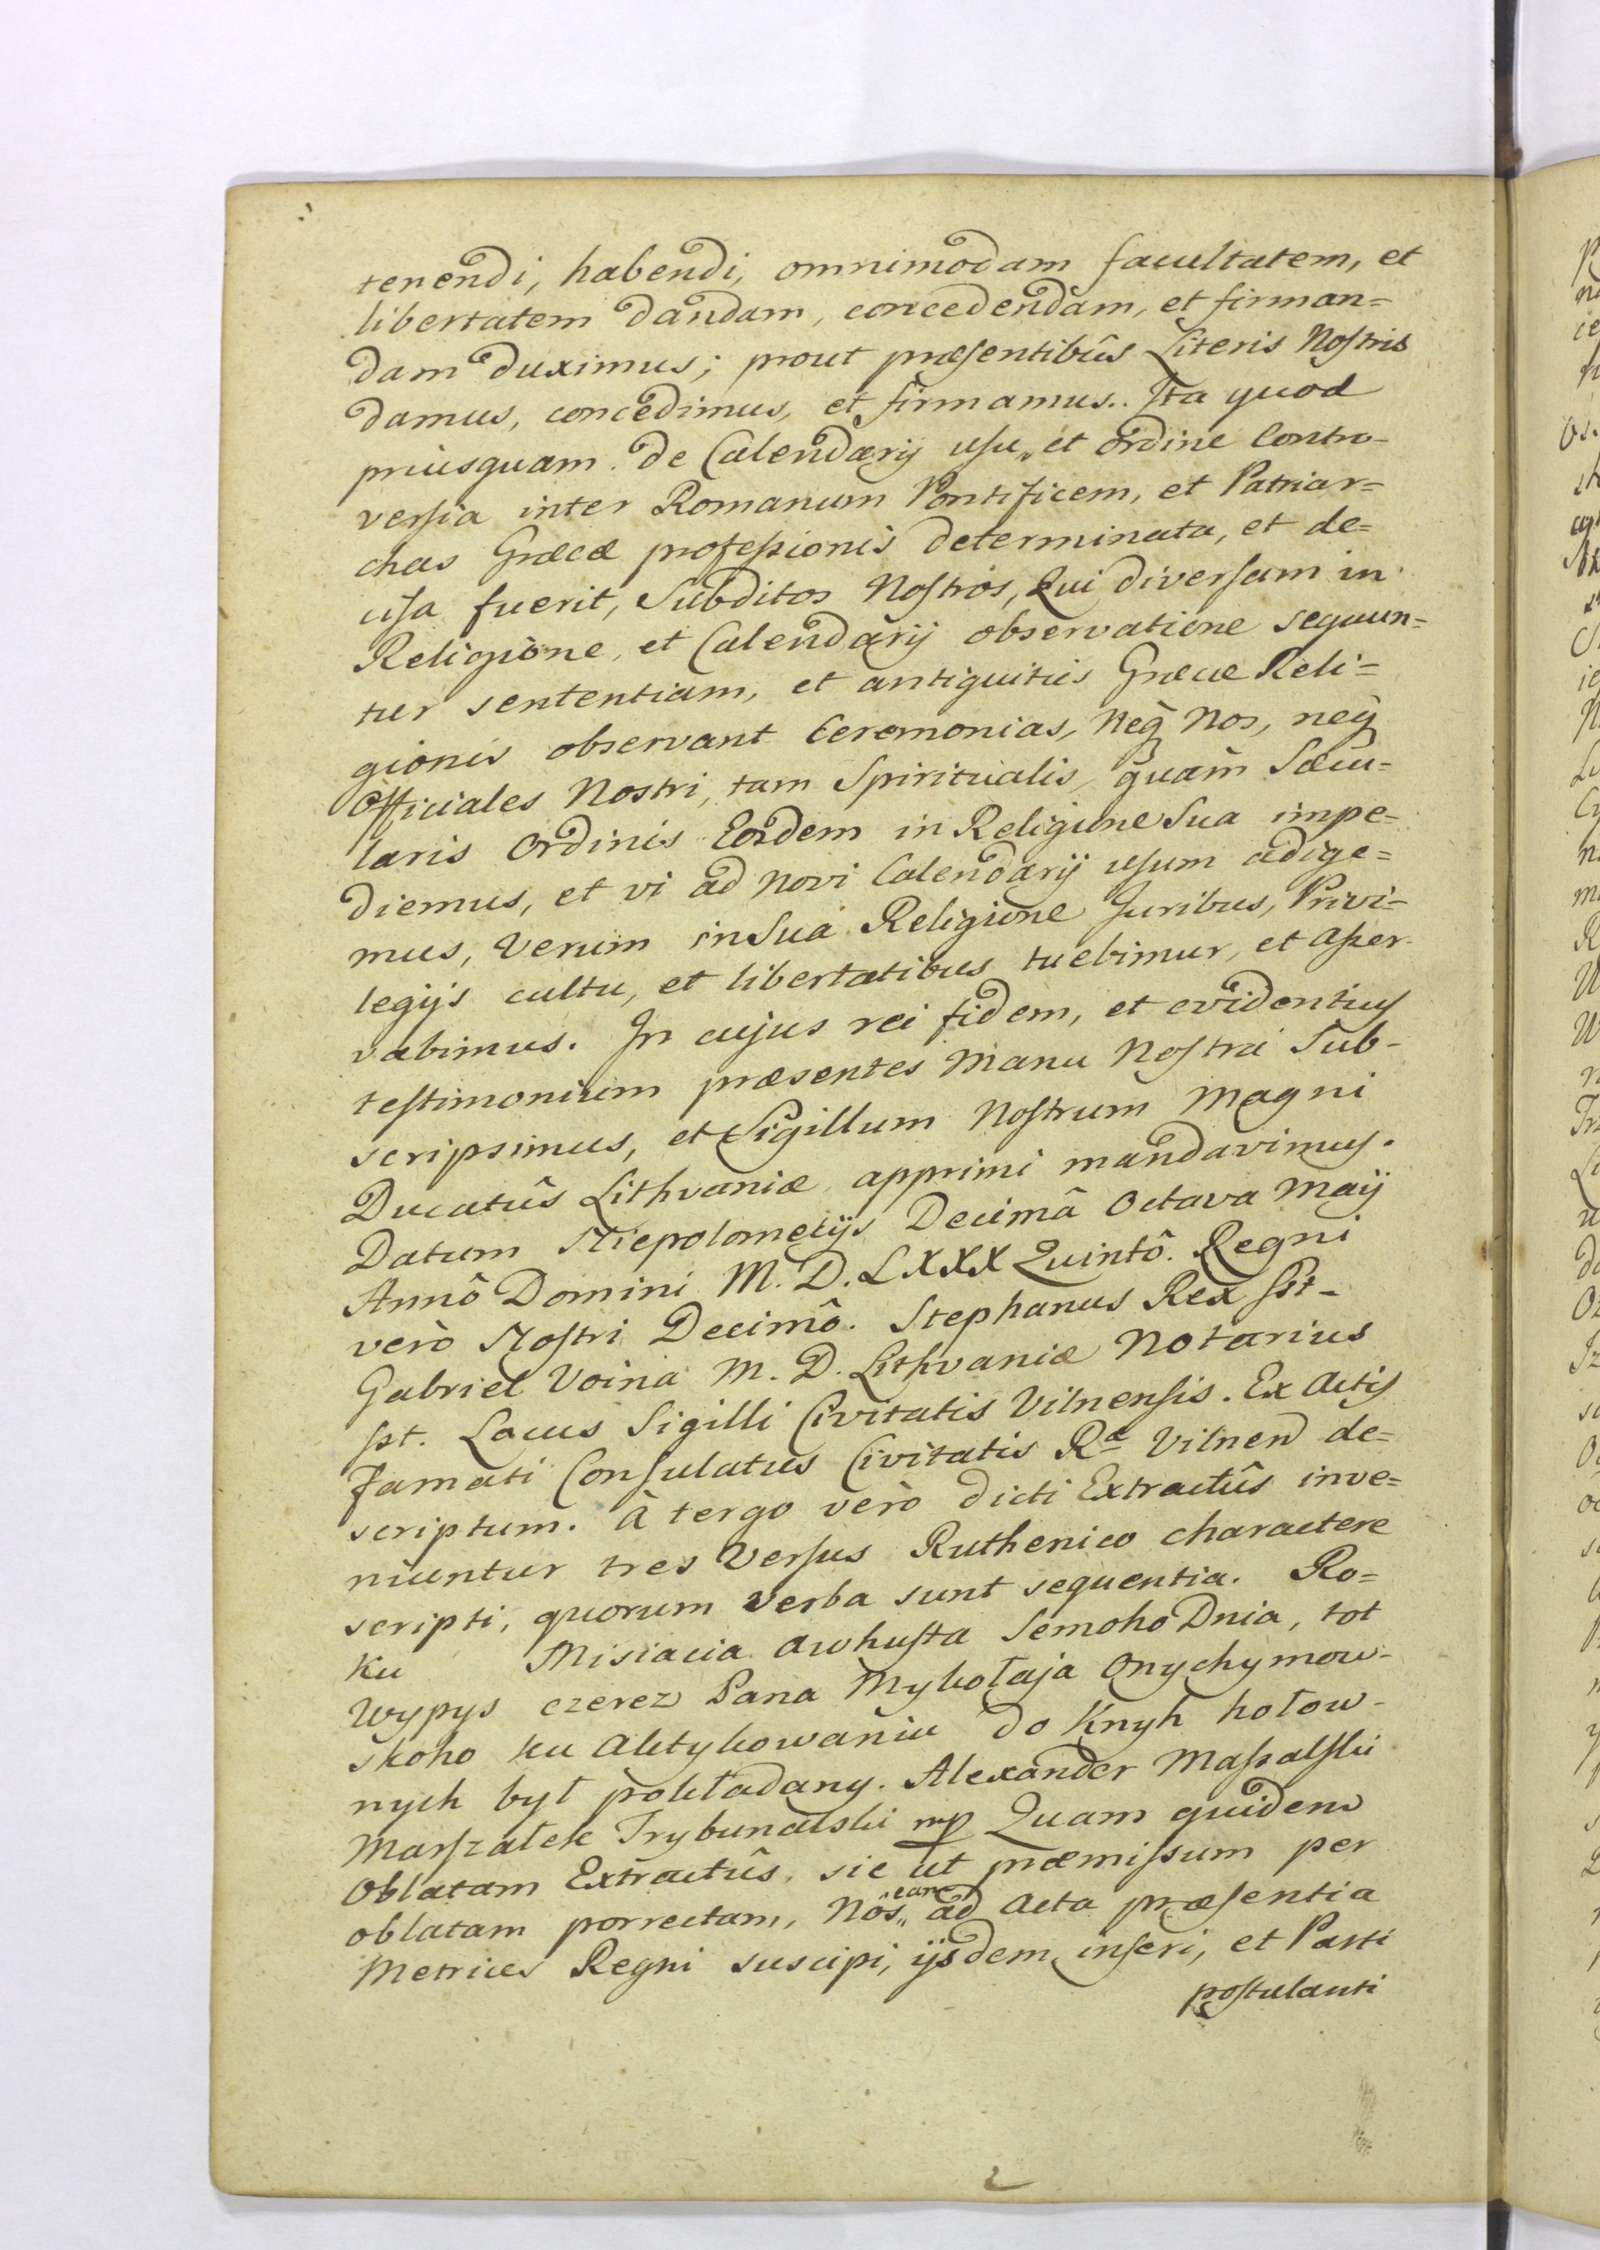 tenendi, habendi, omnimodam facultatem, et
libertatem dandam, concedendam, et firman=
dam duximus; prout præsentibûs Literis Nostris
damus, concedimus, et firmamus. Ita quod
priusquam de Calendarij usu,, et ordine Contro-
versia inter Romanum Pontificem, et Patriar=
chas Græcæ professionis determinata, et de=
cisa fuerit, Subditos Nostros, Qui diversam in
Religione, et Calendarij observatione sequun=
tur sententiam, et antiquitus Græcæ Reli=
gionis observant Ceremonias, Neq́ Nos, neq́
Officiales Nostri, tam Spiritualis, quam Sæcu=
laris Ordinis Eosdem in Religione Sua impe-
diemus, et vi ad Novi Calendarij usum adige=
mus, Verum in Sua Religione Juribus, Privi-
legijs cultu, et libertatibus tuebimur, et asser-
vabimus. In cujus rei fidem, et evidentius
testimonium præsentes Manu Nostra Sub-
scripsimus, et Sigillum Nostrum Magni
Ducatûs Lithvaniæ apprimi mandavimus.
Datum Niepolomecijs Decimâ Octava Maij
Annô Domini M. D. LXXX Quintô. Regni
verò Nostri Decimô. Stephanus Rex sst-
Gabriel Voina M. D. Lithvaniæ Notarius
sst. Locus Sigilli Civitatis Vilnensis. Ex Actis
Famati Consulatus Civitatis Rᵃ Vilnen de=
scriptum. à tergo verò dicti Extractûs inve=
niuntur tres Versus Ruthenico charactere
scripti, quorum verba sunt sequentia. Ro=
ku Misiacia Awhusta Semoho Dnia, tot
Wypys czerez Pana Mykołaja Onychymow-
skoho ku Aktykowaniu do Knyh hołow-
nych był pokładany. Alexander Massalski
Marszałek Trybunalski mp Quam quidem
Oblatam Extractûs, sic ut præmissum per
oblatam porrectam, Nôs,, eam ad Acta præsentia
Metrices Regni suscipi, ijsdem inseri, et Parti
postulanti
2